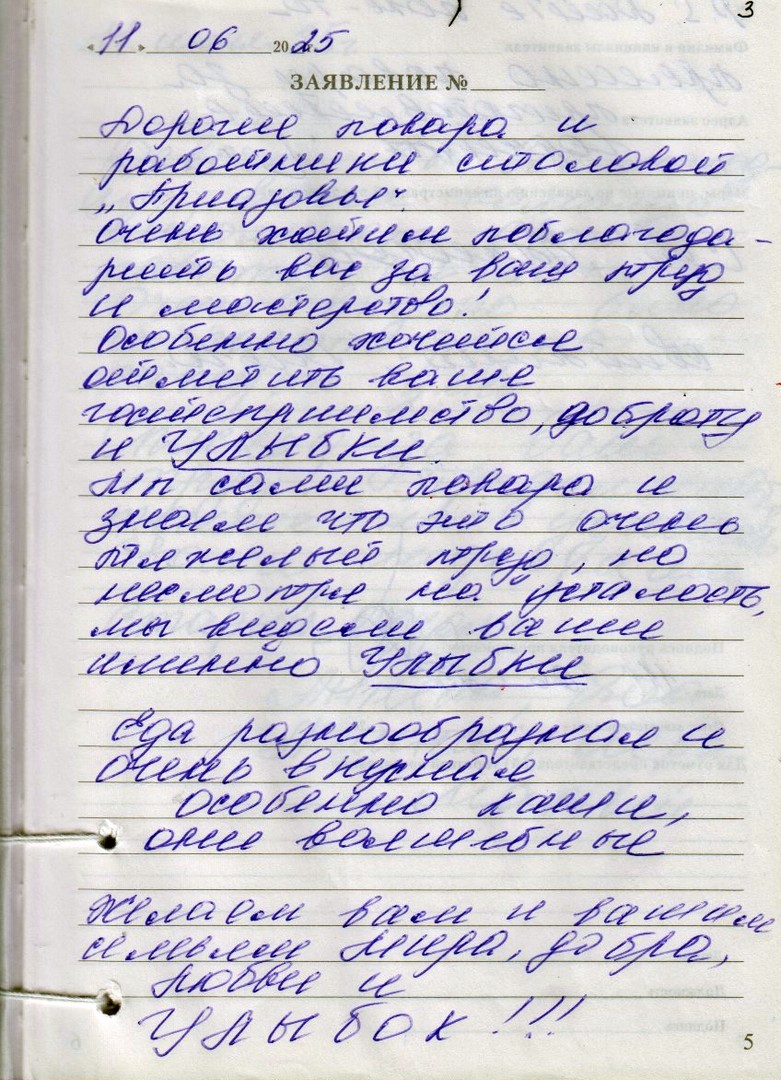 3
« 11 » 06 2025
ЗАЯВЛЕНИЕ №
Дорогие повара и
работники столовой
„Приазовье".
очень хотим поблагода-
рить вас за ваш труд
и мастерство!
особенно хочется
отметить ваше
гостеприимство, доброту
и УЛЫБКИ
мы сами повара и
знаем что это очень
тяжелый труд, но
несмотря на усталость,
мы видели ваши
именно Улыбки
Еда разнообразная и
очень вкусная
особенно каши,
они волшебные
Желаем вам и вашим
семьям мира, добра,
любви и
УЛЫБОК!!!
5